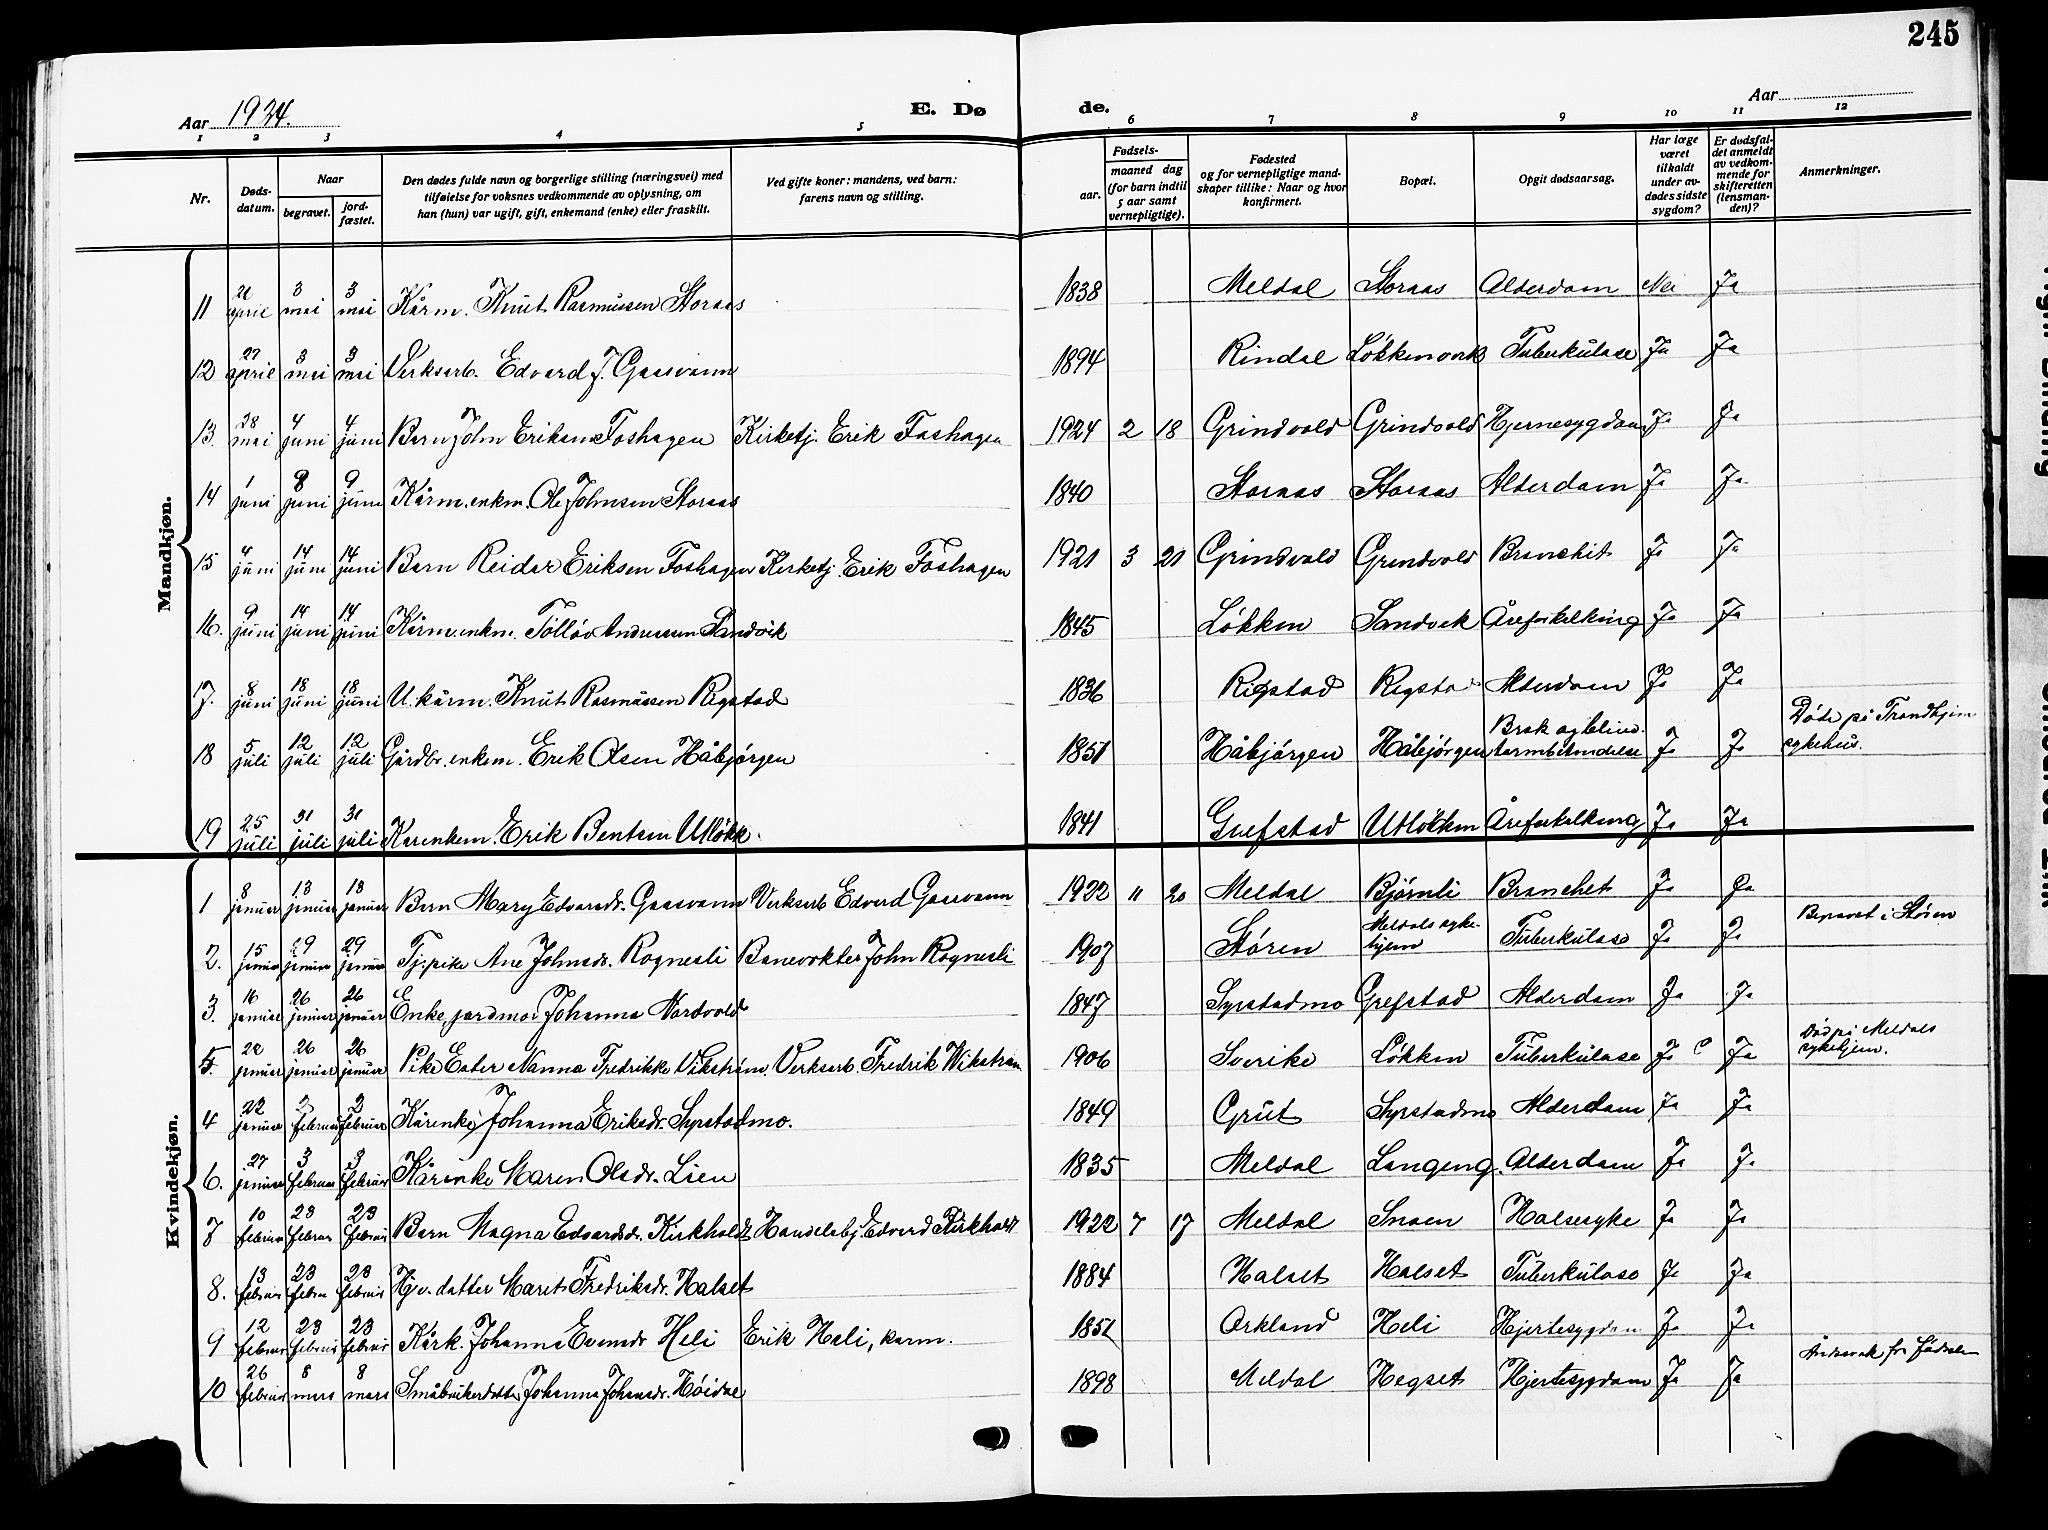 245
Aar 1924.
E. Dø
de.
Aar
1 2 3 4 5 6 7 8 9 10 11 12
Nr.
Døds-
datum.
Naar
begravet.
jord-
fæstet.
Den dødes fulde navn og borgerlige stilling (næringsvei) med
tilføielse for voksnes vedkommende av oplysning, om
han (hun) var ugift, gift, enkemand (enke) eller fraskilt.
Ved gifte koner: mandens, ved barn:
farens navn og stilling.
Fødsels-
aar.
maaned dag
(for barn indtil
5 aar samt
vernepligtige).
Fødested
og for vernepligtige mand-
skaper tillike: Naar og hvor
konfirmert.
Bopæl.
Opgit dødsaarsag.
Har læge
været
tilkaldt
under av-
dødes sidste
sygdom?
Er dødsfal-
det anmeldt
av vedkom-
mende for
skifteretten
(lensman-
den)?
Anmerkninger.
Mandkjøn.
11 april 3 mai 3 mai Kårm. Knut Rasmussen Storaas 1838 Meldal Storaas Alderdom Nei Ja
12 27 april 3 mai 3 mai Verksarb. Edvard J. Gaasvann 1894 Rindal Løkkenverk Tuberkulose Ja Ja
13. 28 mai 4 juni 4 juni Barn John Eriksen Foshagen Kirketj. Erik Foshagen 1924 2 18 Grindvold Grindvold Hjernesygdom Ja Ja
14 1 juni 9 juni 9 juni Kårm. enkm. Ole Johnsen Storaas 1840 Storaas Storaas Alderdom Ja Ja
15 4 juni 14 juni 14 juni Barn Reidar Eriksen Foshagen Kirketj. Erik Foshagen 1921 3 21 Grindvold Grindvold Bronchit Ja Ja
16. 9 juni 14 juni 14 juni Kårm. enkm. Tølløv Andreassen Sandvik 1845 Løkken Sandvik Åreforkalkning Ja Ja
17. 8 juni 18 juni 18 juni U. kårm. Knut Rasmussen Rigstad 1836 Rigstad Rigstad Alderdom Ja Ja
18 5 juli 12 juli 12 juli Gårdbr. enkem. Erik Olsen Håbjørgen 1851 Håbjørgen Håbjørgen Brok og blind-
tarmbetændelse Ja Ja Døde på Trondhjem
sykehus.
19 25 juli 31 juli 31 juli Kårenkem. Erik Bentsen Utløkk. 1841 Grefstad Utløkken Åreforkalkning Ja Ja
Kvindekjøn.
1 8 januar 13 januar 13 januar Barn Mary Edvardsdr. Gaasvann Verksarb Edvard Gaasvann 1922 11 20 Meldal Bjørnli Bronchit Ja Ja
2. 15 januar 29 januar 29 januar Tj. pike Ane Johnsdr. Rognesli Banevokter John Rognesli 1907 Støren Meldals syke-
hjem Tuberkulose Ja Ja Begravet i Støren
3. 16 januar 26 januar 26 januar Enke, jordmor Johanna Nordvold 1847 Syrstadmo Grefstad Alderdom Ja Ja
5. 22 januar 26 januar 26 januar Pike Ester Nanna Fredrikke Vikstrøm. Verksarb. Fredrik Wikstrøm 1906 Sverike Løkken Tuberkulose Ja Ja Død på Meldals
sykehjem.
4 22 januar 2 februar 2 februar Kårenke Johanna Eriksdr. Syrstadmo. 1849 Grut Syrstadmo Alderdom Ja Ja
6. 27 januar 3 februar 3 februar Kårenke Maren Olsdr. Lien 1835 Meldal Langeng. Alderdom Ja Ja
7 10 februar 23 februar 23 februar Barn Magna Edvardsdr. Kirkholt Handelsbj. Edvard Kirkholt 1922 7 17 Meldal Snoen Halsesyke Ja Ja
8. 13 februar 23 februar 23 februar Hjv. datter Marit Fredriksdr. Halset 1884 Halset Halset Tuberkulose Ja Ja
9 12 februar 23 februar 23 februar Kårk. Johanna Evensdr. Heli Erik Heli, karm. 1851 Orkland Heli Hjertesygdom Ja Ja
10 26 februar 8 mars 8 mars Småbrukerdatter Johanna Johansdr. Høidal 1898 Meldal Hegset Hjertesygdom Ja Ja Åndssvak fra fødselen